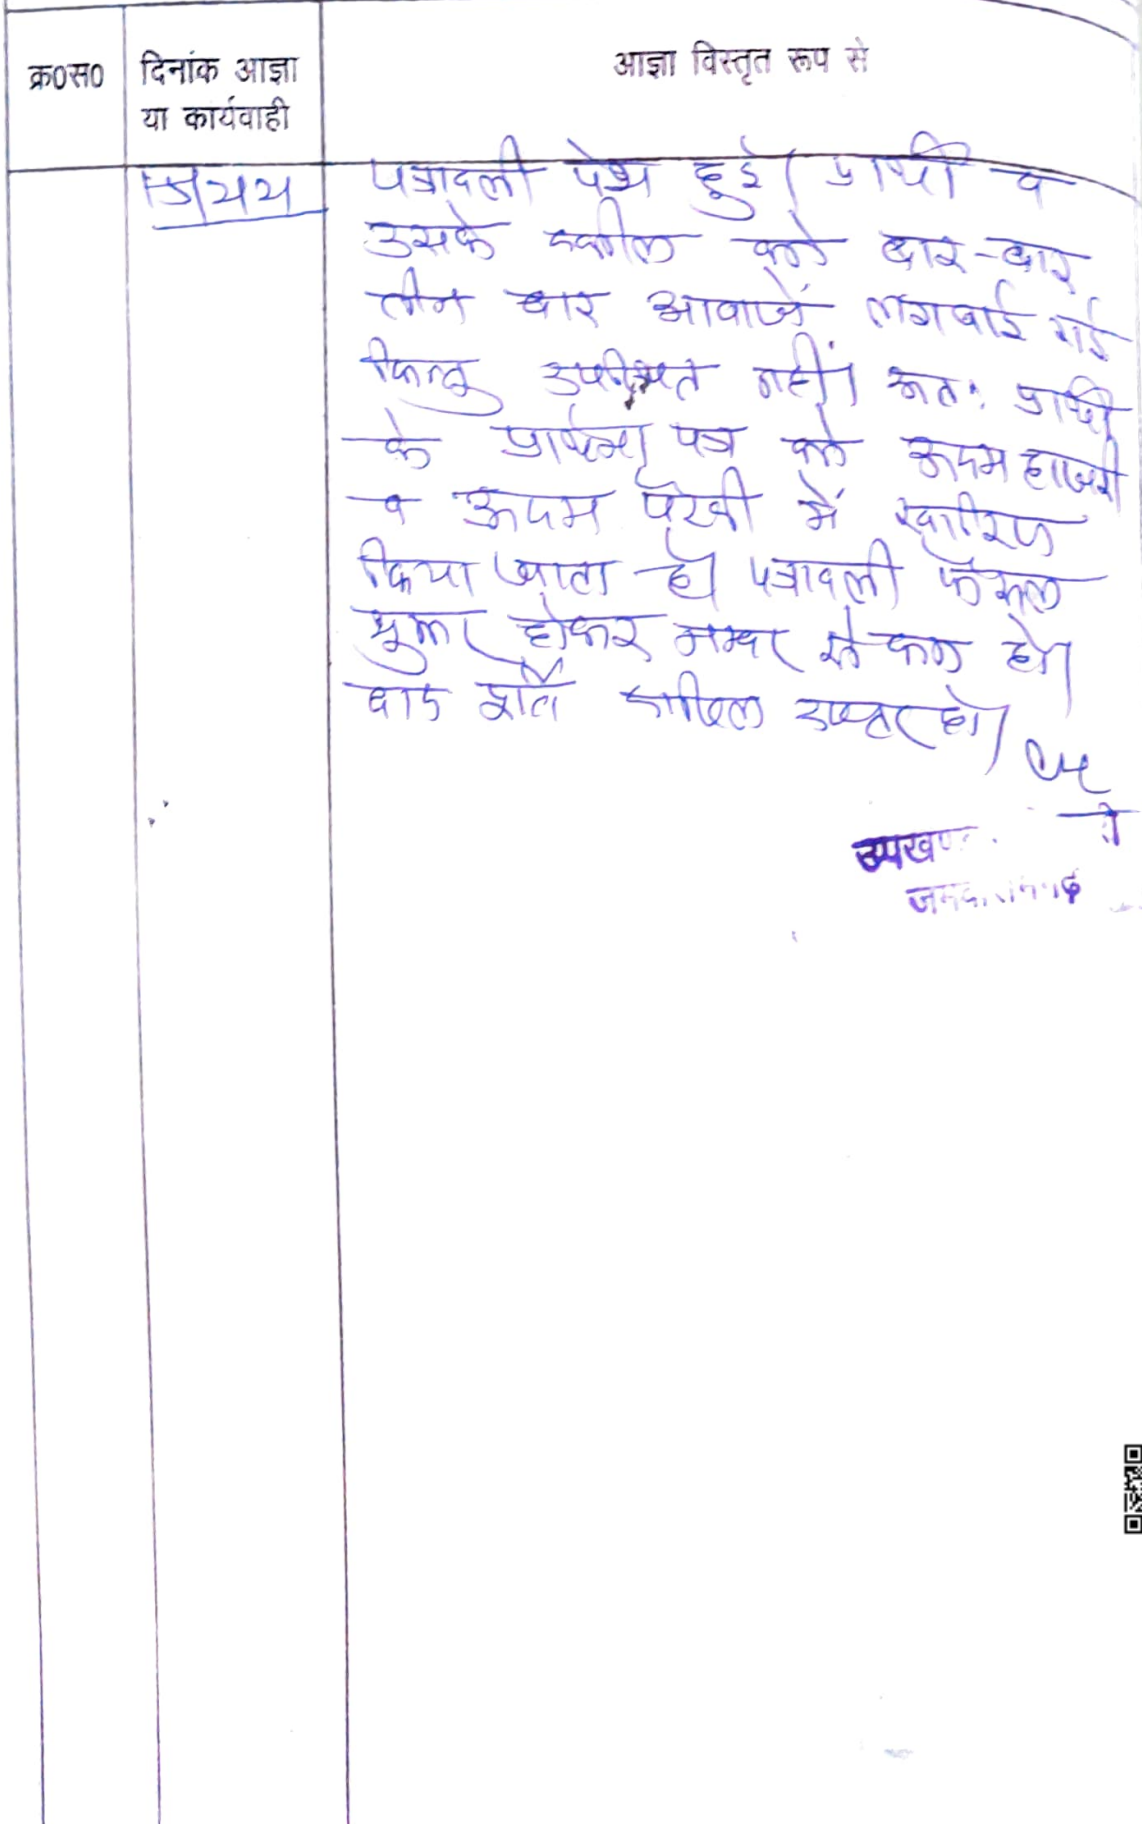 क्र०स०
दिनांक आज्ञा
या कार्यवाही
आज्ञा विस्तृत रूप से
पत्रावली पेश हुई। प्रार्थी व
उसके वकील को बार-बार
तीन बार आवाजें लगवाई गई
किन्तु उपस्थित नहीं। अतः प्रार्थी
के प्रार्थना पत्र को अदम हाजरी
व अदम पैरवी में खारिज
किया जाता है। पत्रावली फैसल
शुमार होकर नम्बर से कम हो।
बाद दाखिल दफ्तर हो।
उपखण